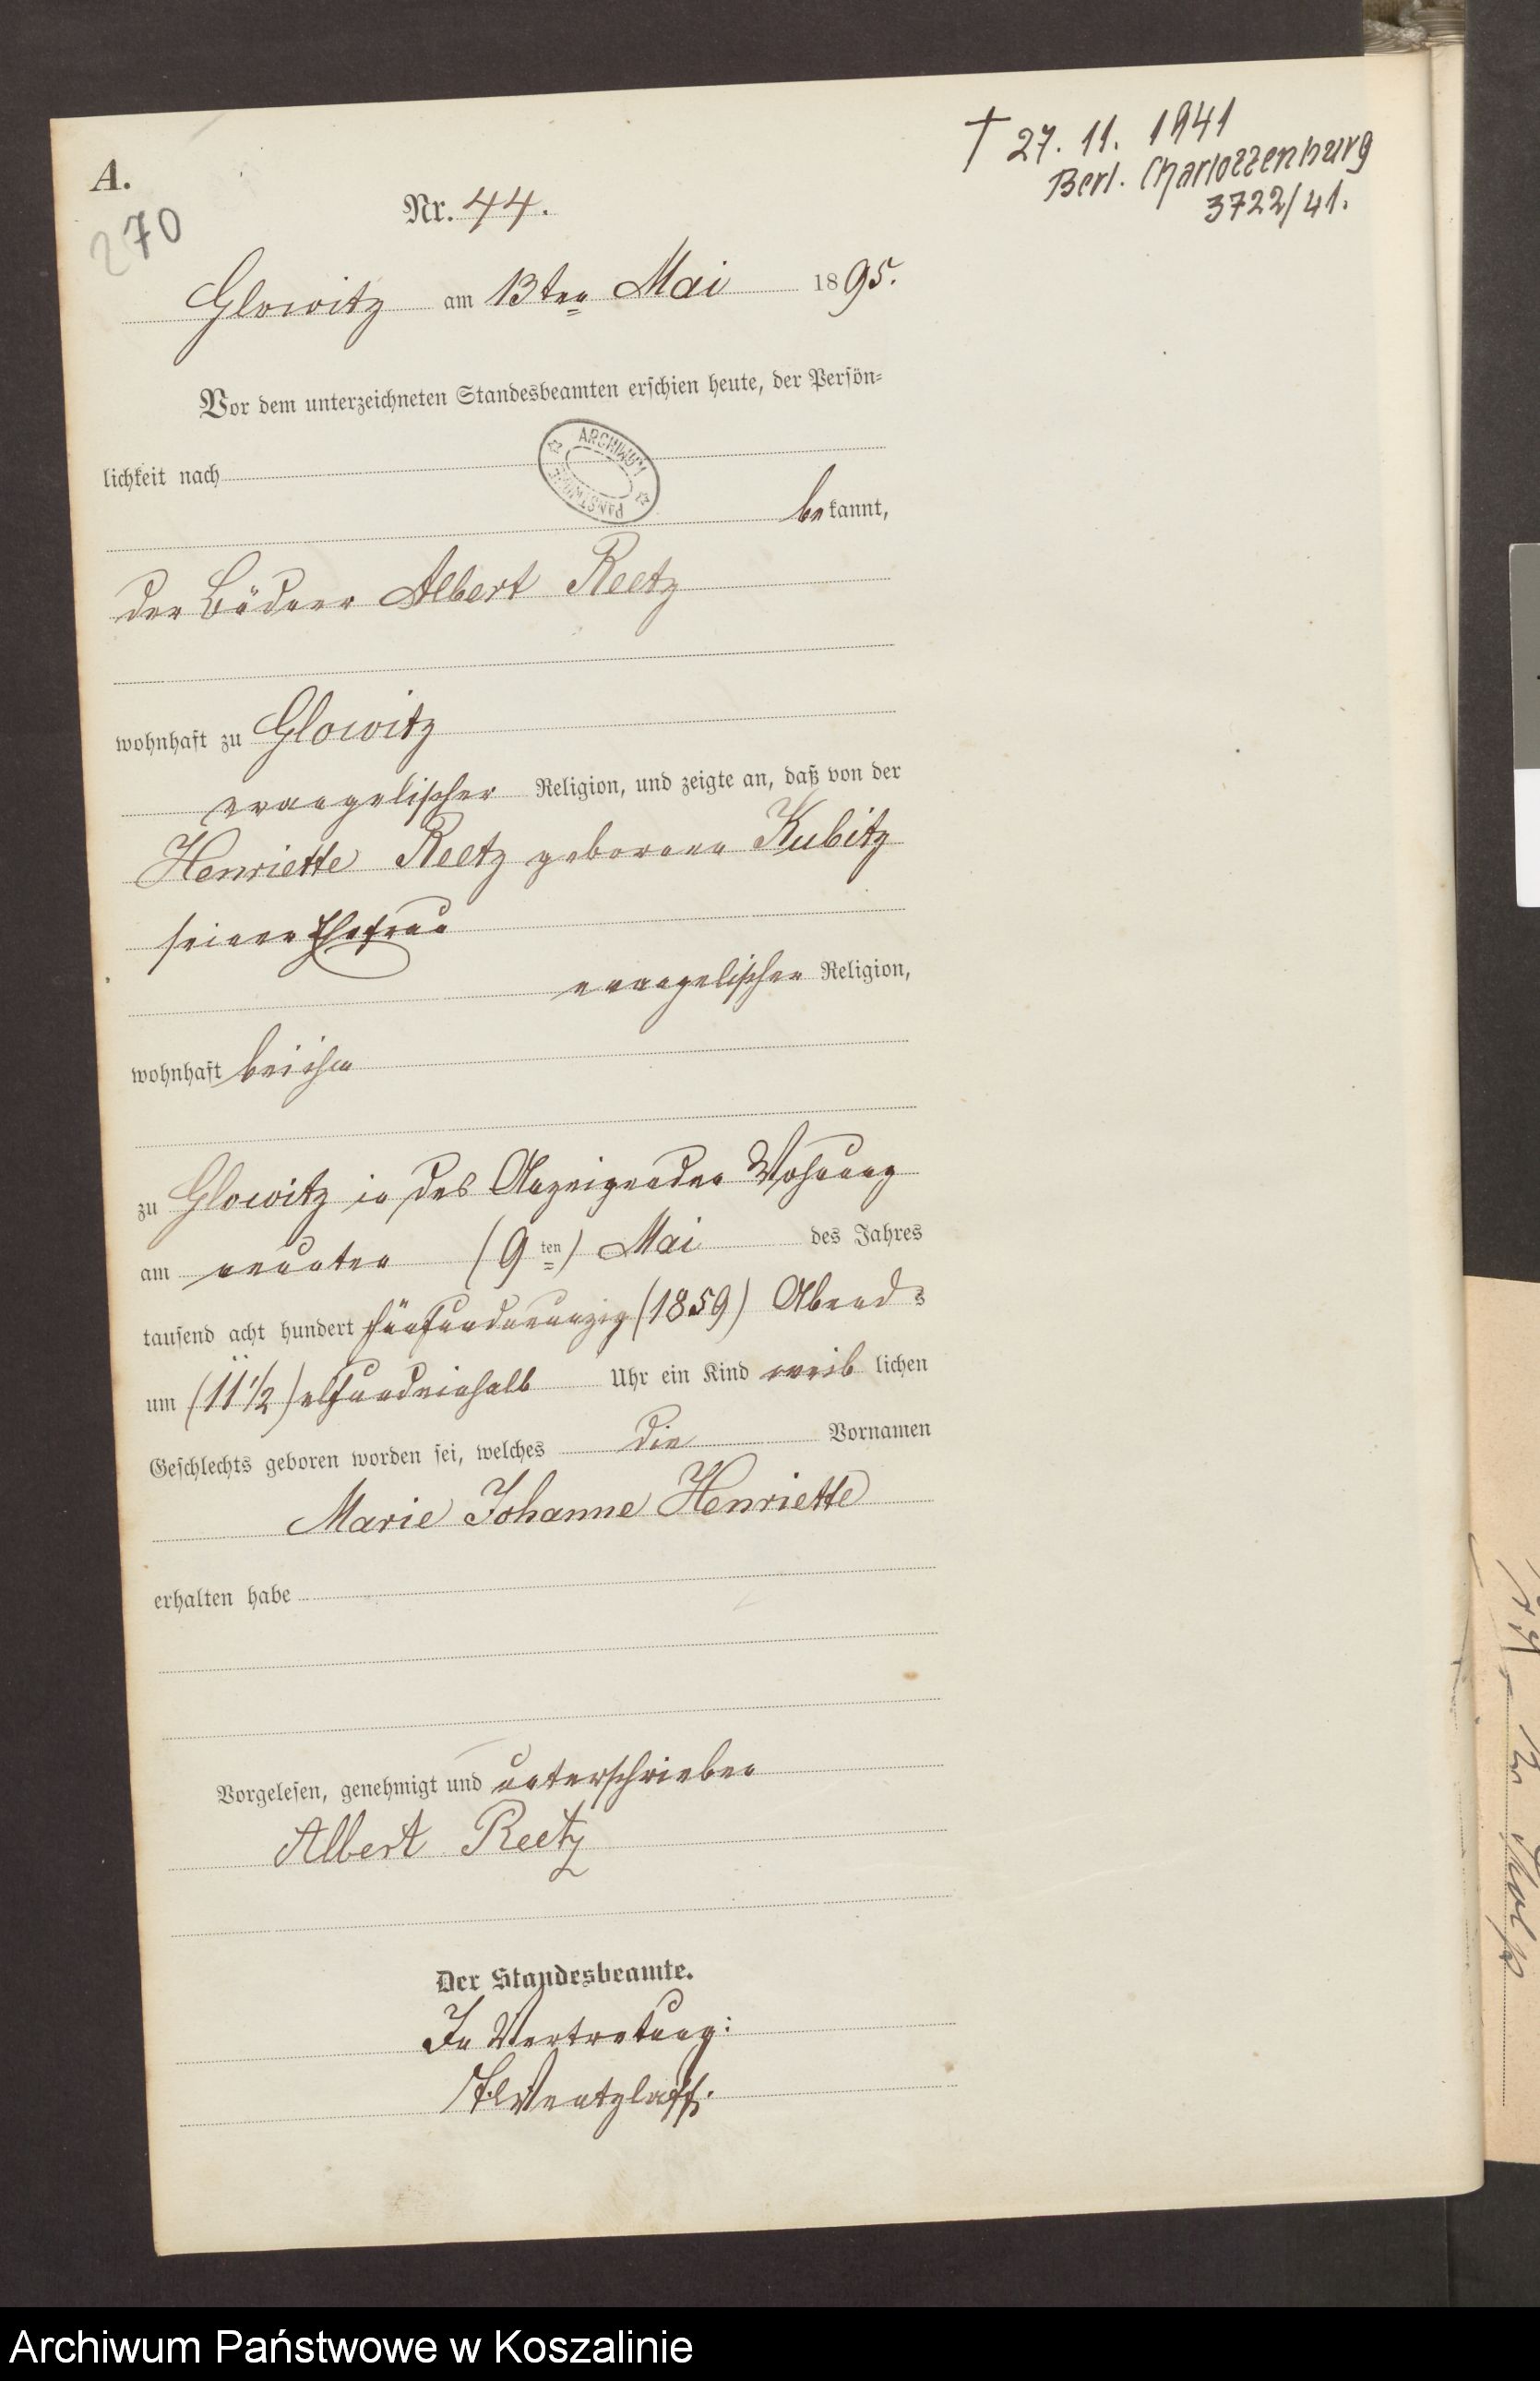 A.
270
Nr. 44.
† 27. 11. 1941
Berl. Charlottenburg
3722/41.
Glowitz am 13ten Mai 1895.
Vor dem unterzeichneten Standesbeamten erschien heute, der Persön-
lichkeit nach
ARCHIWUM PAŃSTWOWE
bekannt,
der Büdner Albert Reetz
wohnhaft zu Glowitz
evangelischer Religion, und zeigte an, daß von der
Henriette Reetz geborene Kubitz
seiner Ehefrau
evangelischer Religion,
wohnhaft bei ihm
zu Glowitz in des Anzeigenden Wohnung
am neunten (9ten) Mai des Jahres
tausend acht hundert fünfundneunzig (1859) Abends
um (11 1/2) elfundeinhalb Uhr ein Kind weiblichen
Geschlechts geboren worden sei, welches die Vornamen
Marie Johanne Henriette
erhalten habe
Vorgelesen, genehmigt und unterschrieben
Albert Reetz
Der Standesbeamte.
In Vertretung:
Wentzlaff.
Archiwum Państwowe w Koszalinie